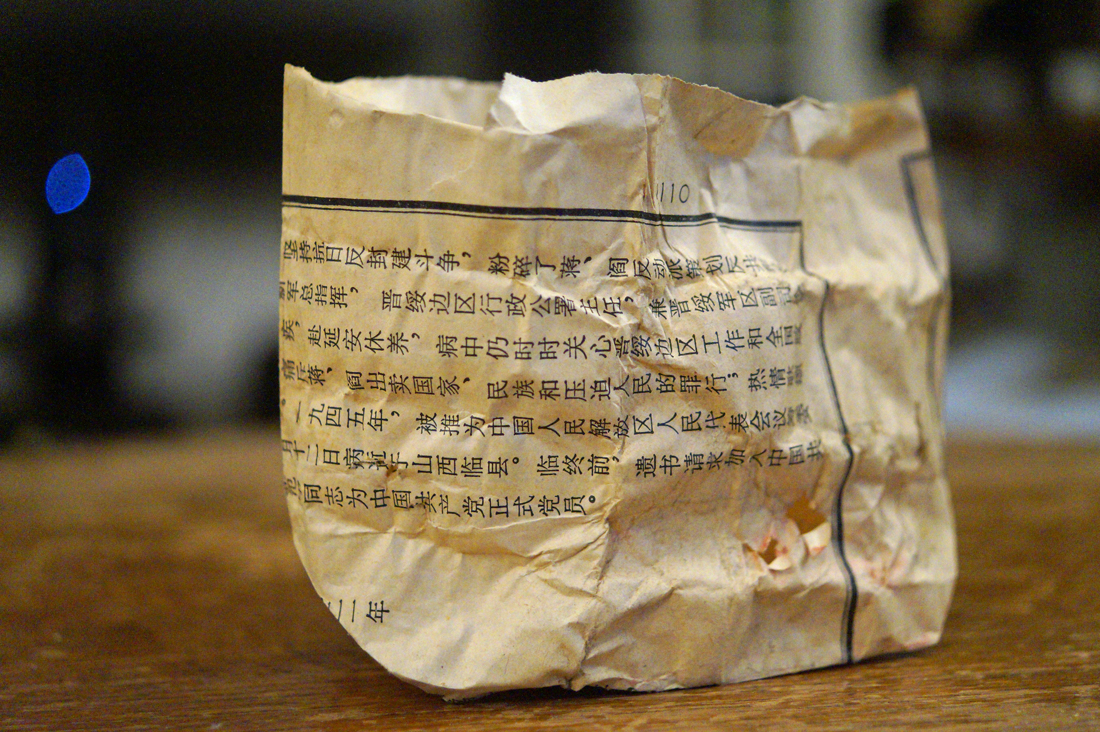 110
坚持抗日反封建斗争，粉碎了蒋、阎反动派策划反共
军总指挥，晋绥边区行政公署主任，兼晋绥军区副
疾，赴延安休养，病中仍时时关心晋绥边区工作和全国
痛斥蒋、阎出卖国家、民族和压迫人民的罪行；热情
。一九四五年，被推为中国人民解放区人民代表会议筹委
月十二日病逝于山西临县。临终前，遗书请求加入中国共
同志为中国共产党正式党员。
二年